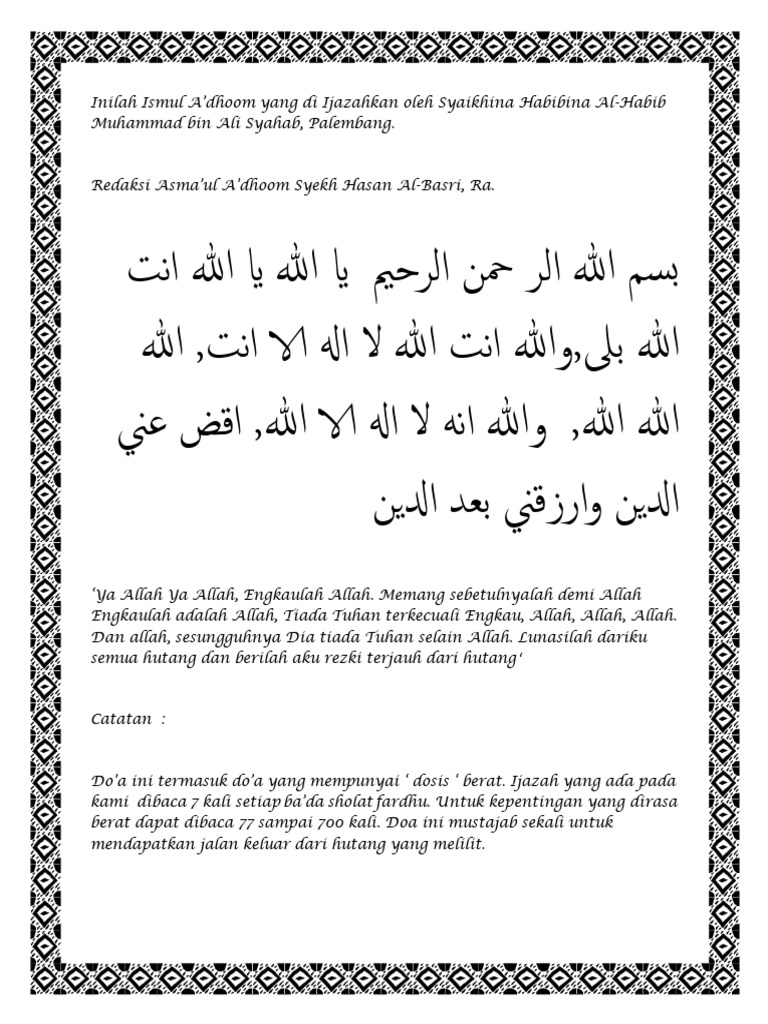 Inilah Ismul A'dhoom yang di Ijazahkan oleh Syaikhina Habibina Al-Habib
Muhammad bin Ali Syahab, Palembang.
Redaksi Asma'ul A'dhoom Syekh Hasan Al-Basri, Ra.
بسم الله الر حمن الرحيم يا الله يا الله انت
الله بلى,والله انت الله لا اله الا انت, الله
الله الله, والله انه لا اله الا الله, اقض عني
الدين وارزقني بعد الدين
'Ya Allah Ya Allah, Engkaulah Allah. Memang sebetulnyalah demi Allah
Engkaulah adalah Allah, Tiada Tuhan terkecuali Engkau, Allah, Allah, Allah.
Dan allah, sesungguhnya Dia tiada Tuhan selain Allah. Lunasilah dariku
semua hutang dan berilah aku rezki terjauh dari hutang'
Catatan :
Do'a ini termasuk do'a yang mempunyai ' dosis ' berat. Ijazah yang ada pada
kami dibaca 7 kali setiap ba'da sholat fardhu. Untuk kepentingan yang dirasa
berat dapat dibaca 77 sampai 700 kali. Doa ini mustajab sekali untuk
mendapatkan jalan keluar dari hutang yang melilit.